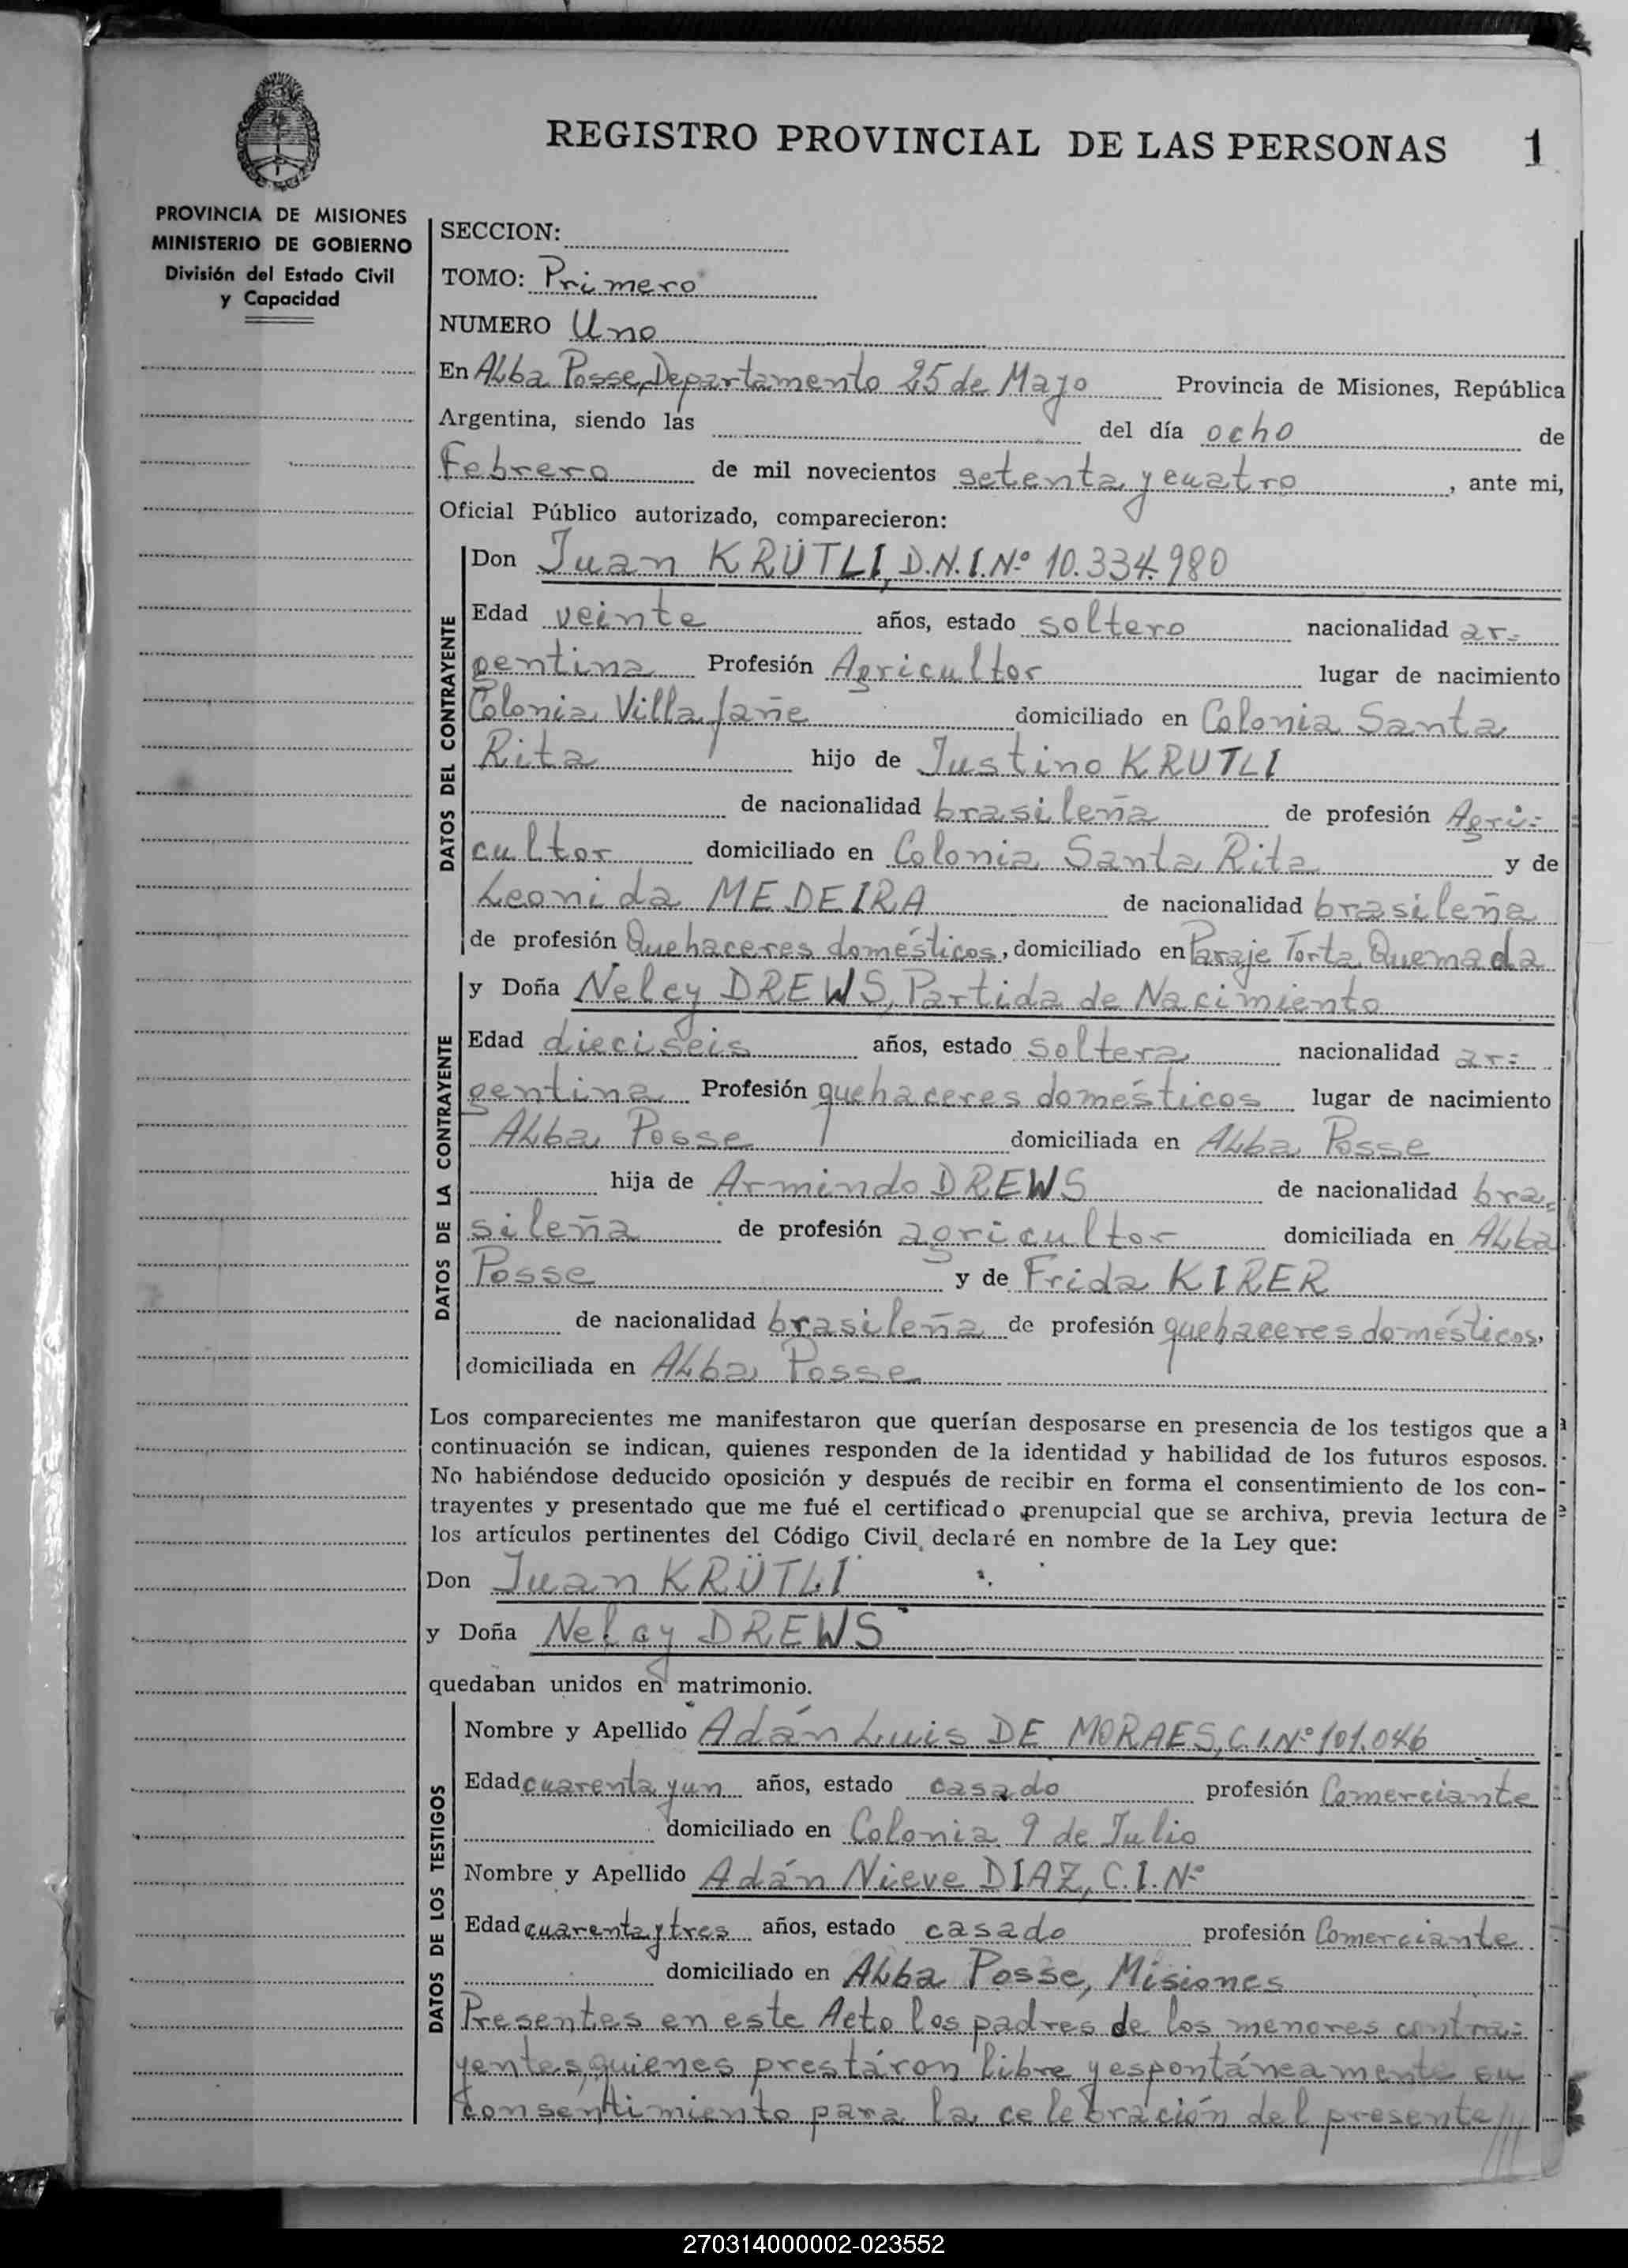 REGISTRO PROVINCIAL DE LAS PERSONAS 1
PROVINCIA DE MISIONES
MINISTERIO DE GOBIERNO
División del Estado Civil
y Capacidad
SECCION:
TOMO: Primero
NUMERO Uno
En Alba Posse, Departamento 25 de Mayo Provincia de Misiones, República
Argentina, siendo las del día ocho de
Febrero de mil novecientos setenta y cuatro, ante mi,
Oficial Público autorizado, comparecieron:
DATOS DEL CONTRAYENTE
Don Juan KRÜTLI, D.N.I.Nº 10.334.980
Edad veinte años, estado soltero nacionalidad ar=
gentina Profesión Agricultor lugar de nacimiento
Colonia Villafañe domiciliado en Colonia Santa
Rita hijo de Justino KRUTLI
de nacionalidad brasileña de profesión Agri=
cultor domiciliado en Colonia Santa Rita y de
Leonida MEDEIRA de nacionalidad brasileña
de profesión Quehaceres domésticos, domiciliado en Paraje Torta Quemada
DATOS DE LA CONTRAYENTE
y Doña Nelcy DREWS, Partida de Nacimiento
Edad dieciseis años, estado soltera nacionalidad ar=
gentina Profesión quehaceres domésticos lugar de nacimiento
Alba Posse domiciliada en Alba Posse
hija de Armindo DREWS de nacionalidad bra=
sileña de profesión agricultor domiciliada en Alba
Posse y de Frida KIRER
de nacionalidad brasileña de profesión quehaceres domésticos,
domiciliada en Alba Posse
Los comparecientes me manifestaron que querían desposarse en presencia de los testigos que a
continuación se indican, quienes responden de la identidad y habilidad de los futuros esposos.
No habiéndose deducido oposición y después de recibir en forma el consentimiento de los con-
trayentes y presentado que me fué el certificado prenupcial que se archiva, previa lectura de
los artículos pertinentes del Código Civil, declaré en nombre de la Ley que:
Don Juan KRÜTLI
y Doña Nelcy DREWS
quedaban unidos en matrimonio.
DATOS DE LOS TESTIGOS
Nombre y Apellido Adán Luis DE MORAES, C.I.Nº 101.046
Edad cuarenta y un años, estado casado profesión Comerciante
domiciliado en Colonia 9 de Julio
Nombre y Apellido Adán Nieve DIAZ, C.I.Nº
Edad cuarenta y tres años, estado casado profesión Comerciante
domiciliado en Alba Posse, Misiones
Presentes en este Acto los padres de los menores contra=
yentes, quienes prestáron libre y espontáneamente su
consentimiento para la celebración del presente///
270314000002-023552